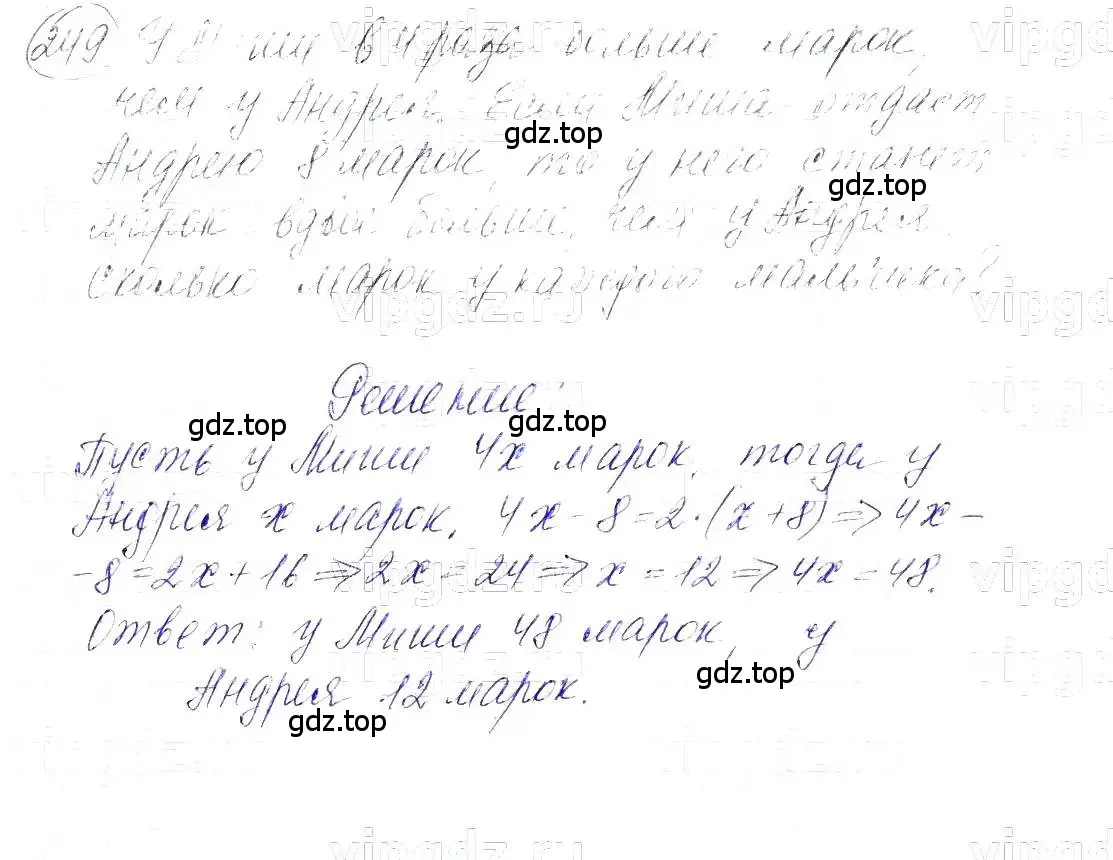 249 У Миши в 4 раза больше марок,
чем у Андрея. Если Миша отдаст
Андрею 8 марок, то у него станет
марок вдвое больше, чем у Андрея.
Сколько марок у каждого мальчика?
Решение:
Пусть у Миши 4х марок, тогда у
Андрея х марок. 4х - 8 = 2·(х+8) => 4х -
- 8 = 2х + 16 => 2х = 24 => х = 12 => 4х = 48.
Ответ: у Миши 48 марок, у
Андрея 12 марок.
gdz.top
gdz.top
gdz.top
gdz.top
gdz.top
vipgdz.ru